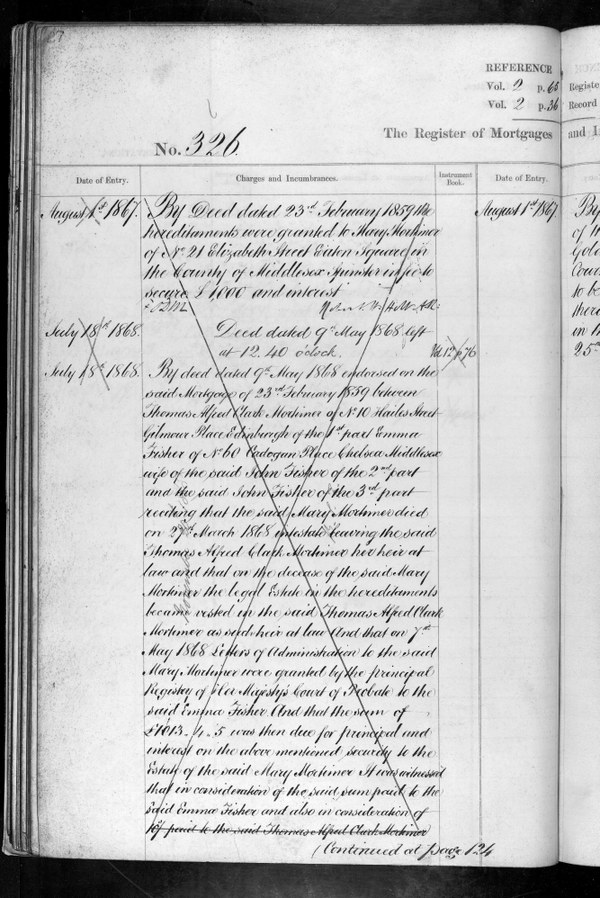 REFERENCE
Vol. 2 p. 65
Vol. 2 p. 36
No. 326.
The Register of Mortgages
Date of Entry.
Charges and Incumbrances.
Instrument Book.
Date of Entry.
August 1st 1867.
By Deed dated 23rd February 1859 the
August 1st 1867
hereditaments were granted to Mary Mortimer
of No 21 Elizabeth Street Eaton Square in
the County of Middlesex Spinster in fee to
secure £1,000 and interest
July 18th 1868.
Deed dated 9th May 1868 left
at 12.40 o'clock.
Vol 12 p 76
July 18th 1868.
By deed dated 9th May 1868 endorsed on the
said Mortgage of 23rd February 1859 between
Thomas Alfred Clark Mortimer of No 10 Hailes Street
Gilmour Place Edinburgh of the 1st part Emma
Fisher of No 60 Cadogan Place Chelsea Middlesex
wife of the said John Fisher of the 2nd part
and the said John Fisher of the 3rd part
reciting that the said Mary Mortimer died
on 27th March 1868 intestate leaving the said
Thomas Alfred Clark Mortimer her heir at
law and that on the decease of the said Mary
Mortimer the legal Estate in the hereditaments
became vested in the said Thomas Alfred Clark
Mortimer as said heir at law And that on 7th
May 1868 Letters of Administration to the said
Mary Mortimer were granted by the principal
Registry of Her Majesty's Court of Probate to the
said Emma Fisher And that the sum of
£1013-4-5 was then due for principal and
interest on the above mentioned security to the
Estate of the said Mary Mortimer It was witnessed
that in consideration of the said sum paid to the
said Emma Fisher and also in consideration of
10/ paid to the said Thomas Alfred Clark Mortimer
(Continued at page 124
Registe
Record
and I
By
of
Cour
to be
in th
25th